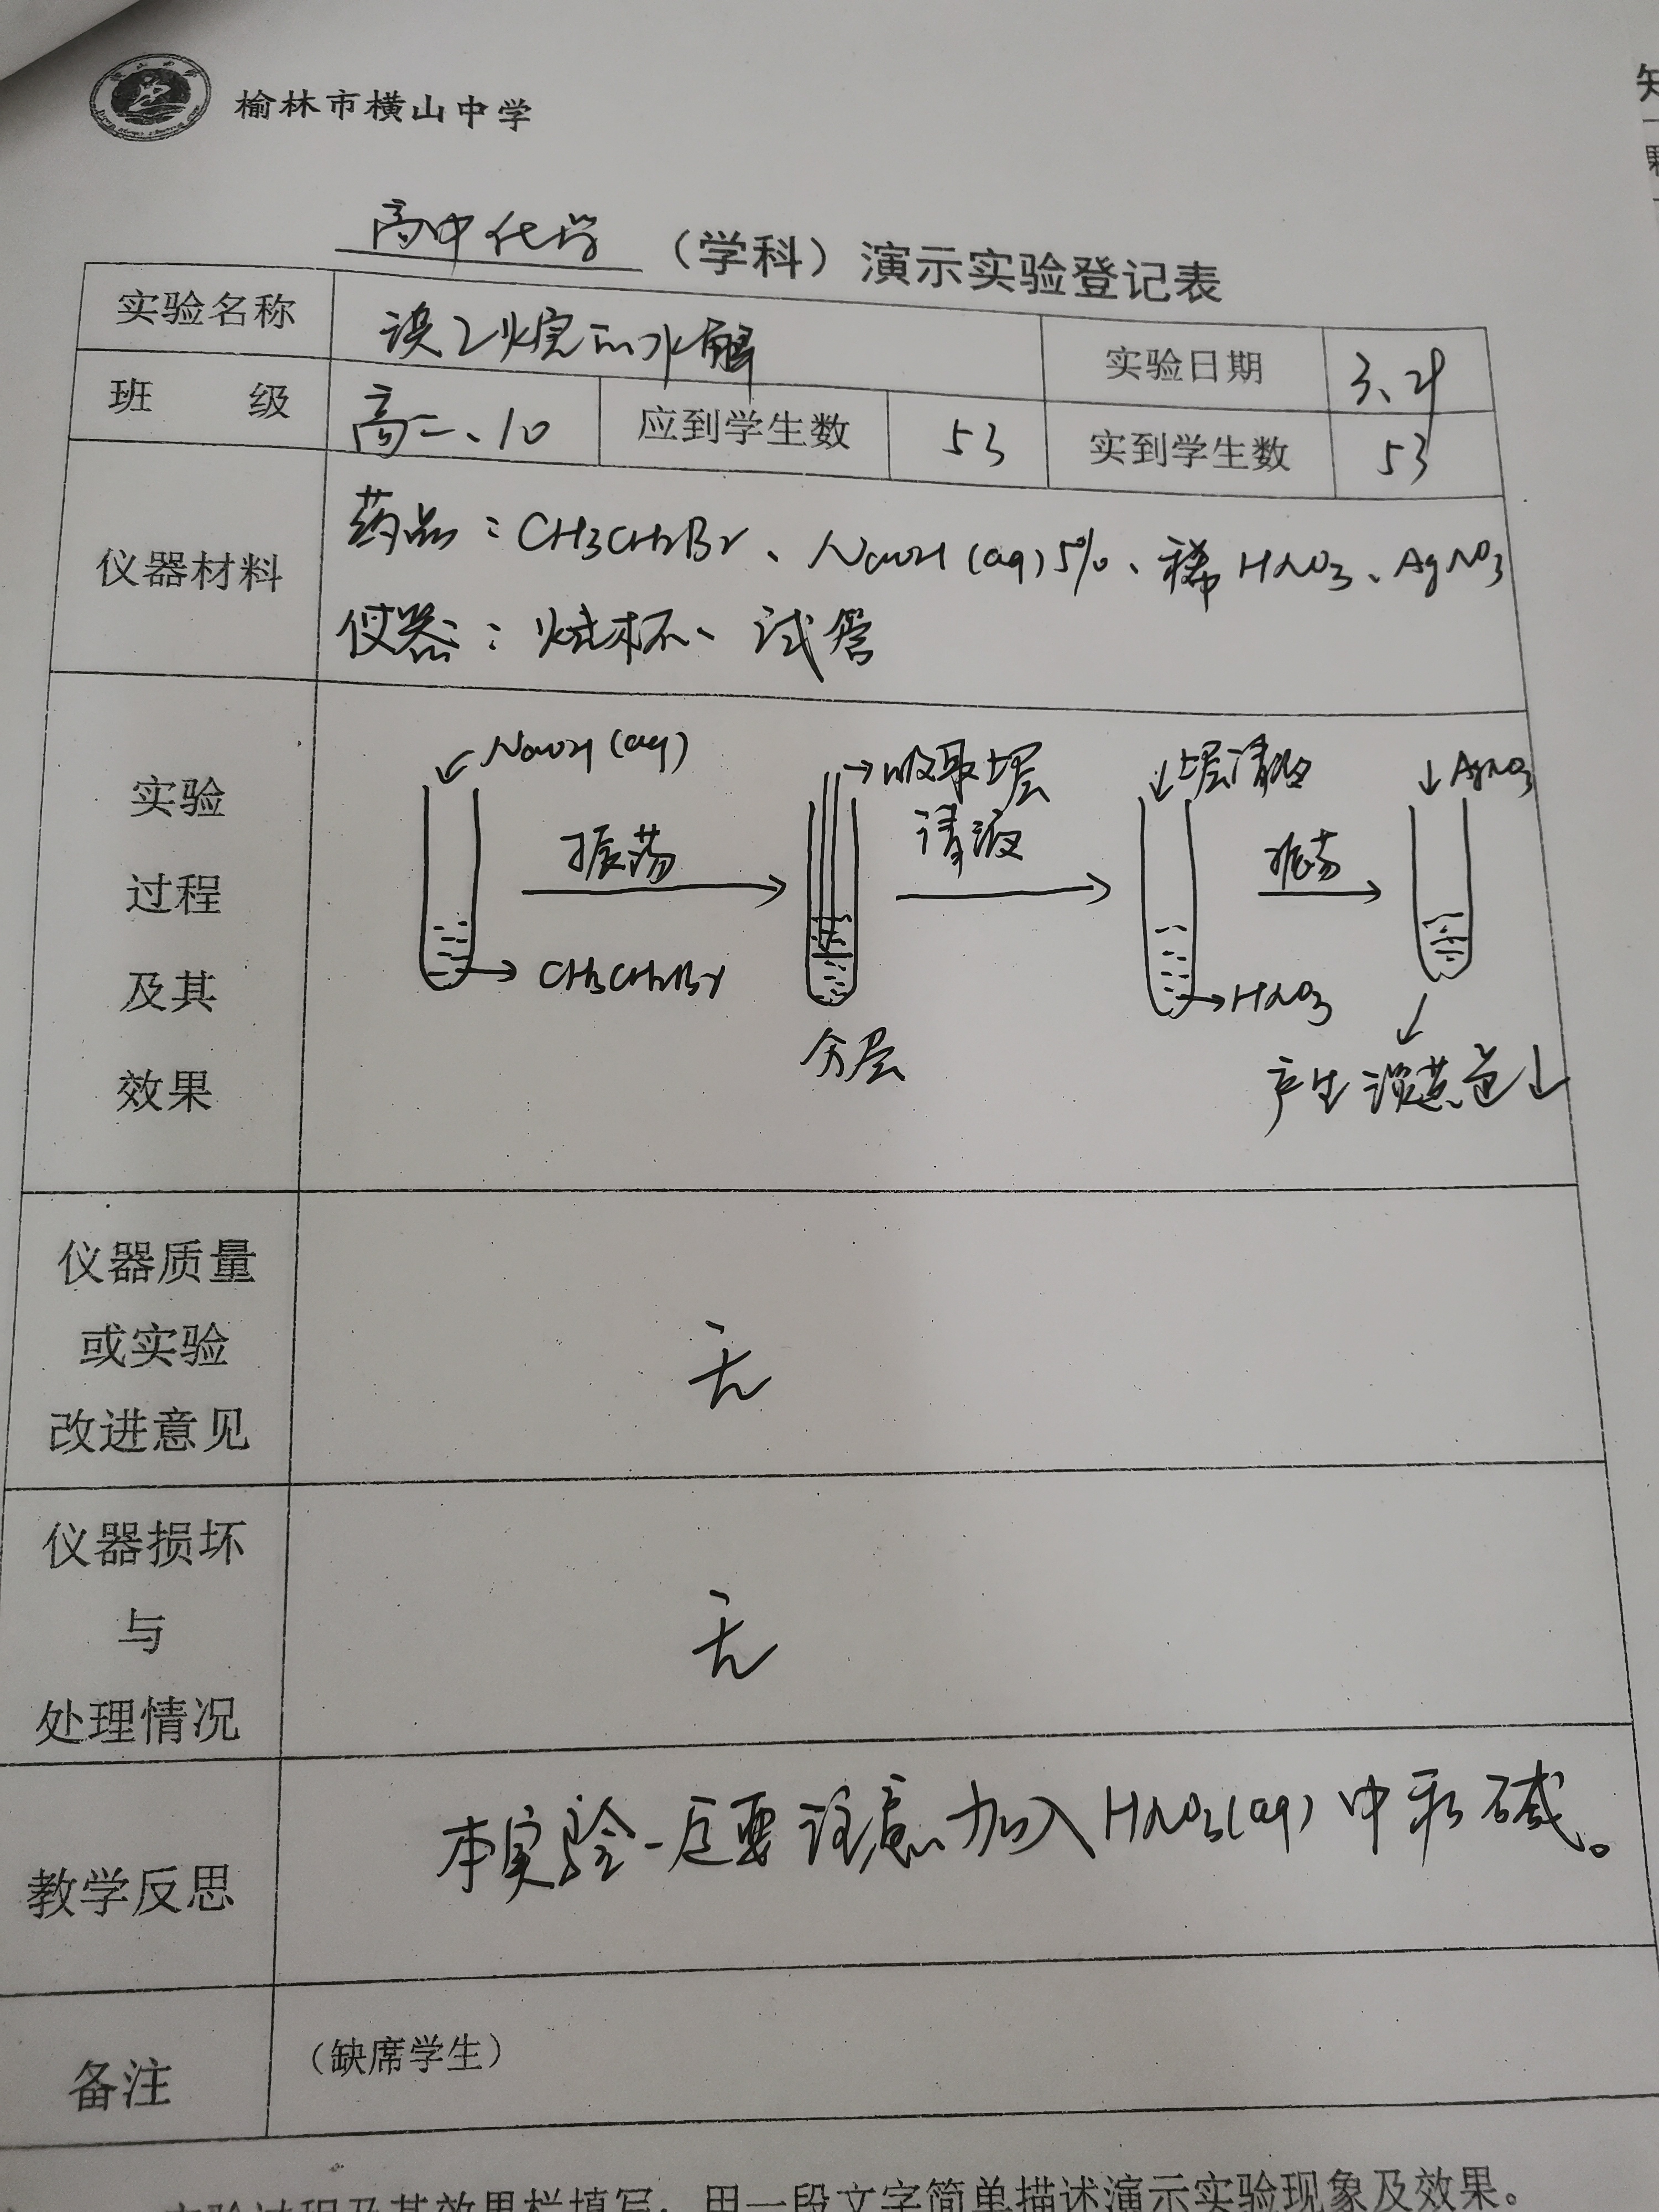 榆林市横山中学
高中化学（学科）演示实验登记表
实验名称 溴乙烷的水解 实验日期
班 级 高二、10 应到学生数 53 实到学生数 53
仪器材料
药品：CH3CH2Br、NaOH(aq)5%、稀HNO3、AgNO3
仪器：烧杯、试管
实验
过程
及其
效果
NaOH(aq)
振荡
CH3CH2Br
吸取上层
清液
分层
上层清液
HNO3
振荡
AgNO3
产生淡黄色↓
仪器质量
或实验
改进意见
无
仪器损坏
与
处理情况
无
教学反思
本实验一定要注意加入HNO3(aq)中和碱。
备注
（缺席学生）
实验过程及其效果栏填写：用一段文字简单描述演示实验现象及效果。